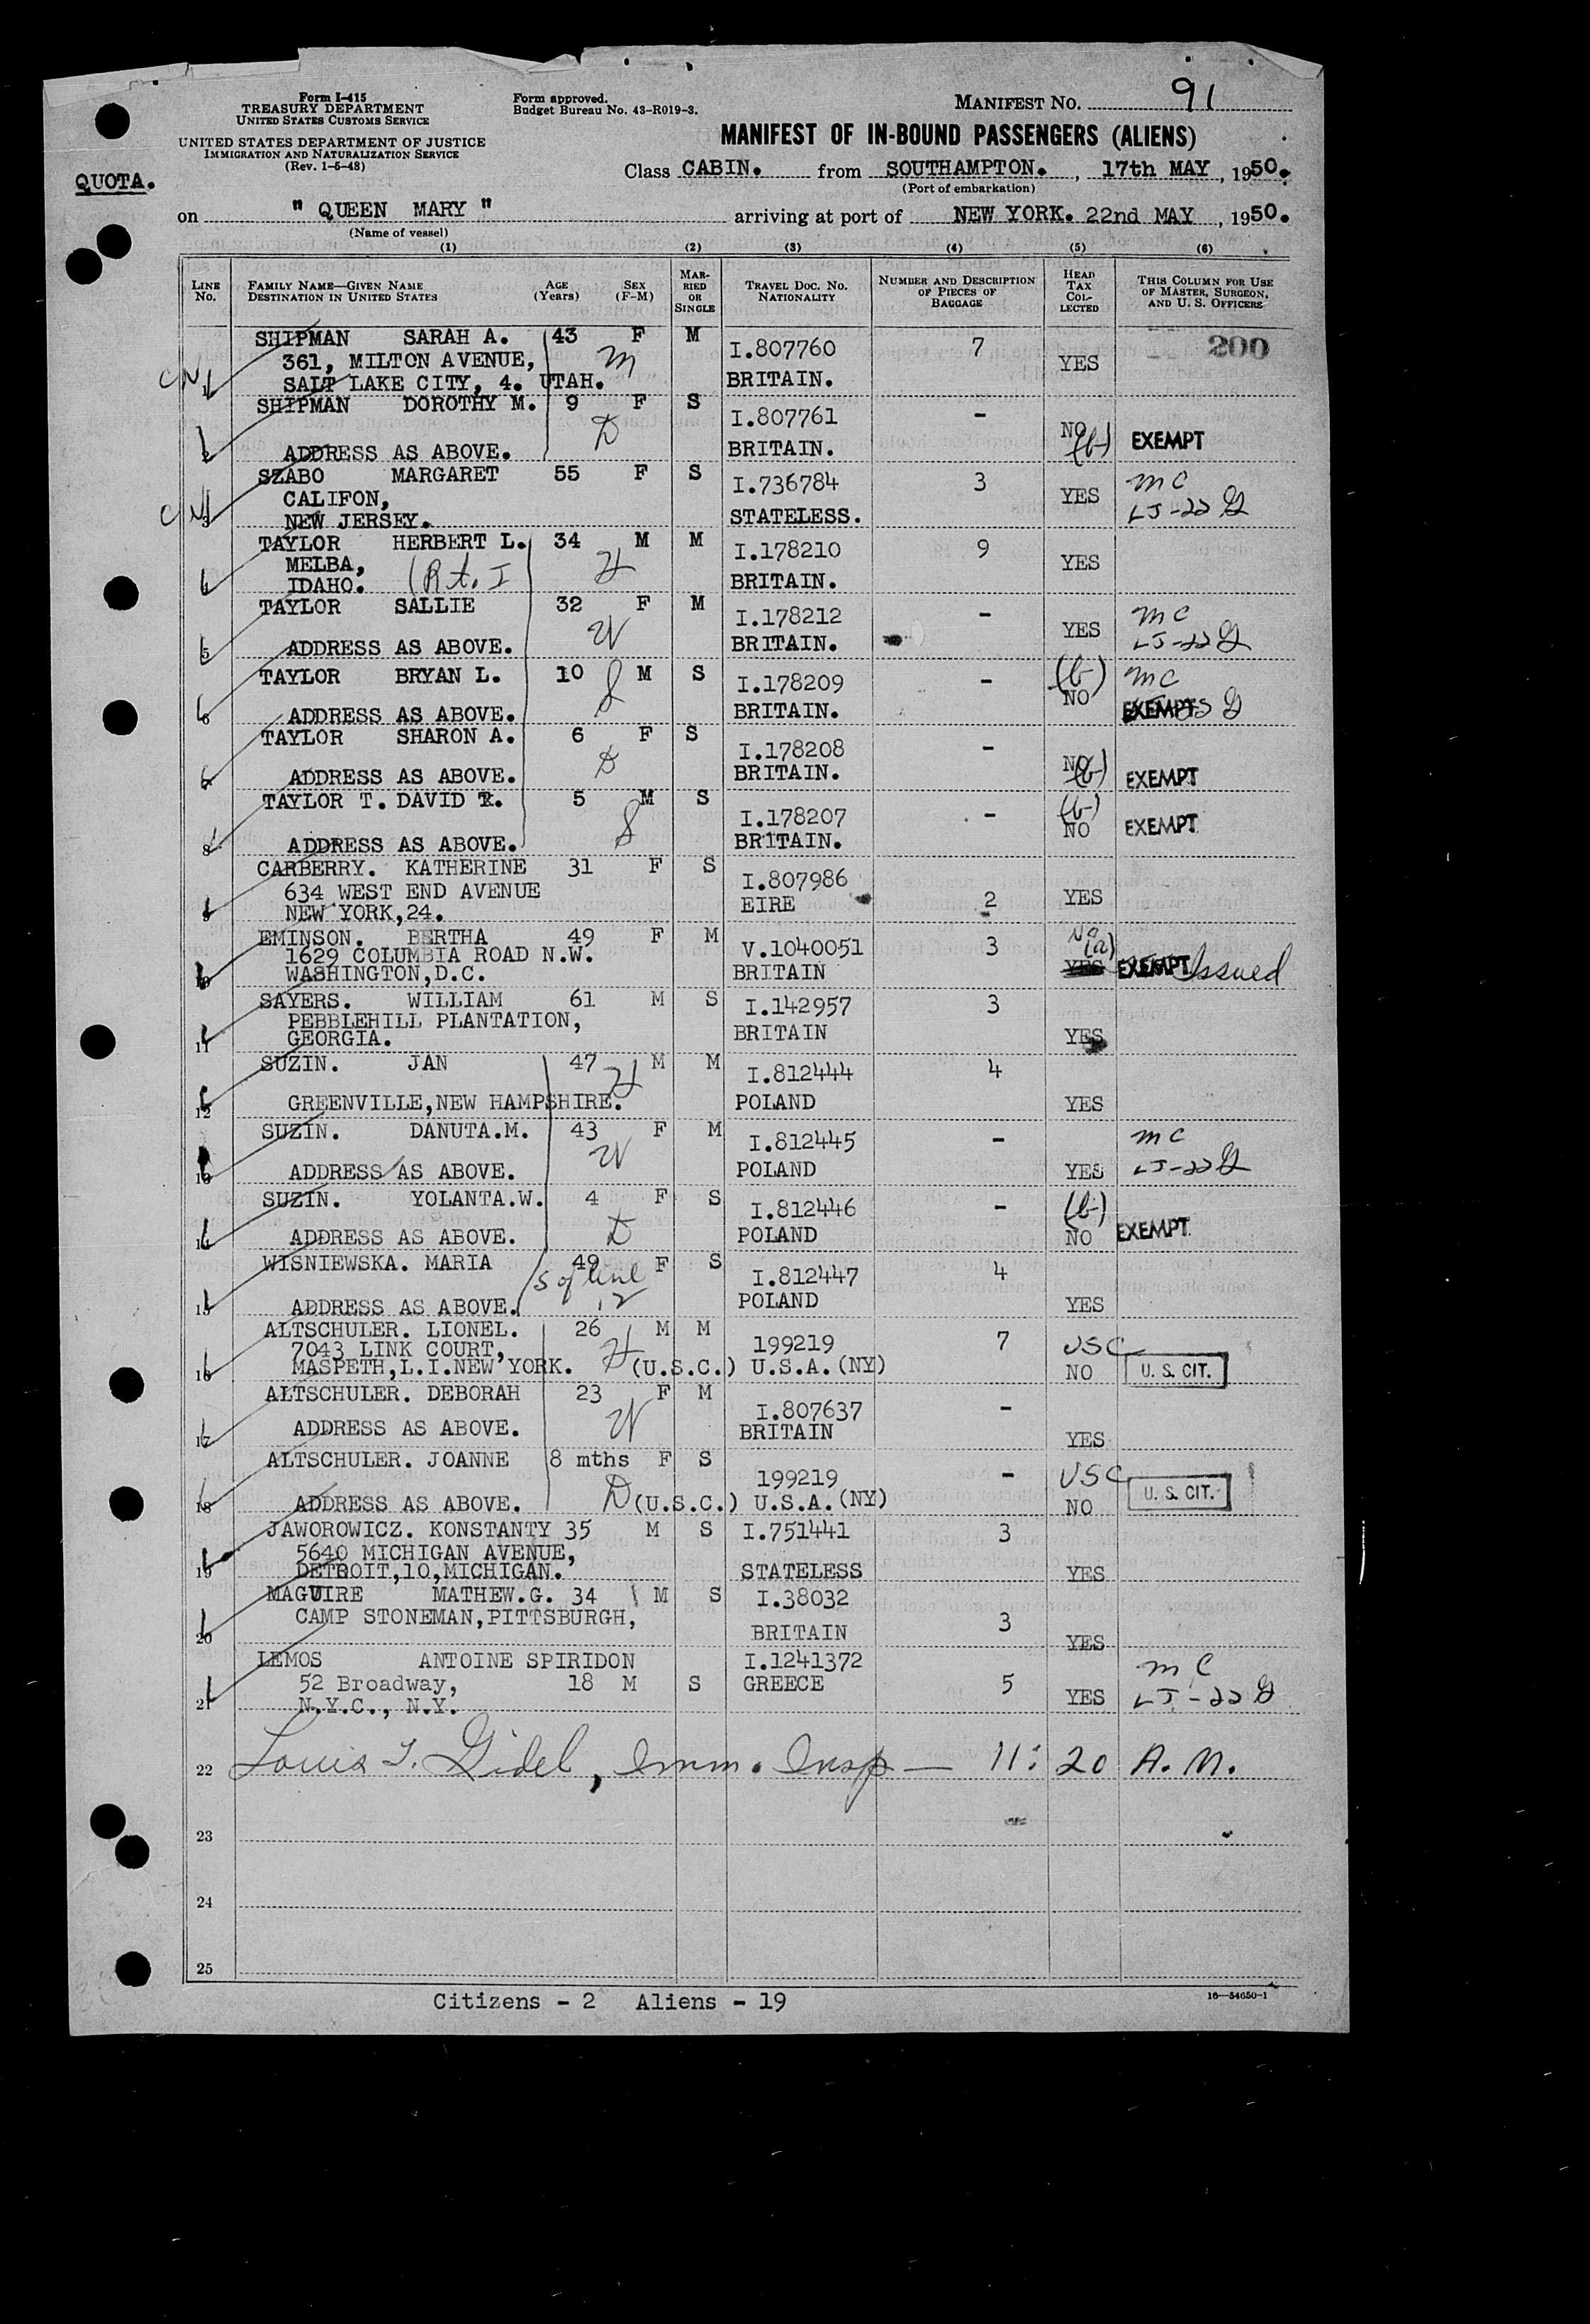 Form I-415
TREASURY DEPARTMENT
UNITED STATES CUSTOMS SERVICE
UNITED STATES DEPARTMENT OF JUSTICE
IMMIGRATION AND NATURALIZATION SERVICE
(Rev. 1-5-48)
Form approved.
Budget Bureau No. 43-R019-3.
MANIFEST NO. 91
MANIFEST OF IN-BOUND PASSENGERS (ALIENS)
QUOTA.
Class CABIN. from SOUTHAMPTON. , 17th MAY , 1950.
(Port of embarkation)
on " QUEEN MARY " arriving at port of NEW YORK. 22nd MAY , 1950.
(Name of vessel)
(1) (2) (3) (4) (5) (6)
LINE No. FAMILY NAME—GIVEN NAME DESTINATION IN UNITED STATES AGE (Years) SEX (F-M) MARRIED OR SINGLE TRAVEL DOC. NO. NATIONALITY NUMBER AND DESCRIPTION OF PIECES OF BAGGAGE HEAD TAX COLLECTED THIS COLUMN FOR USE OF MASTER, SURGEON, AND U. S. OFFICERS
SHIPMAN SARAH A. 43 F M I.807760 7 YES 200
361, MILTON AVENUE, M
CN 1 SALT LAKE CITY, 4. UTAH. BRITAIN.
SHIPMAN DOROTHY M. 9 F S I.807761 - NO (b) EXEMPT
2 ADDRESS AS ABOVE. D BRITAIN.
SZABO MARGARET 55 F S I.736784 3 YES MC
CALIFON, LJ-22 G
CN 3 NEW JERSEY. STATELESS.
TAYLOR HERBERT L. 34 M M I.178210 9 YES
MELBA, H
4 IDAHO. (Rt. I BRITAIN.
TAYLOR SALLIE 32 F M I.178212 - YES MC
5 ADDRESS AS ABOVE. W BRITAIN. LJ-22 G
TAYLOR BRYAN L. 10 M S I.178209 - (b) NO MC
6 ADDRESS AS ABOVE. S BRITAIN. EXEMPT G
TAYLOR SHARON A. 6 F S I.178208 - NO (b) EXEMPT
7 ADDRESS AS ABOVE. D BRITAIN.
TAYLOR T. DAVID 5 M S I.178207 - (b) NO EXEMPT
8 ADDRESS AS ABOVE. S BRITAIN.
CARBERRY. KATHERINE 31 F S I.807986
634 WEST END AVENUE EIRE 2 YES
9 NEW YORK,24.
EMINSON. BERTHA 49 F M V.1040051 3 No (a)
1629 COLUMBIA ROAD N.W.
10 WASHINGTON,D.C. BRITAIN YES EXEMPT Issued
SAYERS. WILLIAM 61 M S I.142957 3
PEBBLEHILL PLANTATION, BRITAIN
11 GEORGIA. YES
SUZIN. JAN 47 M M I.812444 4
H
12 GREENVILLE,NEW HAMPSHIRE. POLAND YES
SUZIN. DANUTA.M. 43 F M I.812445 - MC
13 ADDRESS AS ABOVE. W POLAND YES LJ-22 G
SUZIN. YOLANTA.W. 4 F S I.812446 - (b)
14 ADDRESS AS ABOVE. D POLAND NO EXEMPT
WISNIEWSKA. MARIA 49 F S I.812447 4
S of line 12
15 ADDRESS AS ABOVE. POLAND YES
ALTSCHULER. LIONEL. 26 M M 199219 7 USC
7043 LINK COURT,
16 MASPETH,L.I.NEW YORK. H (U.S.C.) U.S.A.(NY) NO U. S. CIT.
ALTSCHULER. DEBORAH 23 F M I.807637 -
17 ADDRESS AS ABOVE. W BRITAIN YES
ALTSCHULER. JOANNE 8 mths F S 199219 - USC
18 ADDRESS AS ABOVE. D (U.S.C.) U.S.A.(NY) NO U. S. CIT.
JAWOROWICZ. KONSTANTY 35 M S I.751441 3
5640 MICHIGAN AVENUE,
19 DETROIT,10,MICHIGAN. STATELESS YES
MAGUIRE MATHEW.G. 34 M S I.38032
CAMP STONEMAN,PITTSBURGH, 3
20 BRITAIN YES
LEMOS ANTOINE SPIRIDON I.1241372 MC
52 Broadway, 18 M S GREECE 5 YES LJ-22 G
21 N.Y.C., N.Y.
22 Louis J. Gidel, Imm. Insp — 11:20 A.M.
23
24
25
Citizens - 2 Aliens - 19
16—54650-1